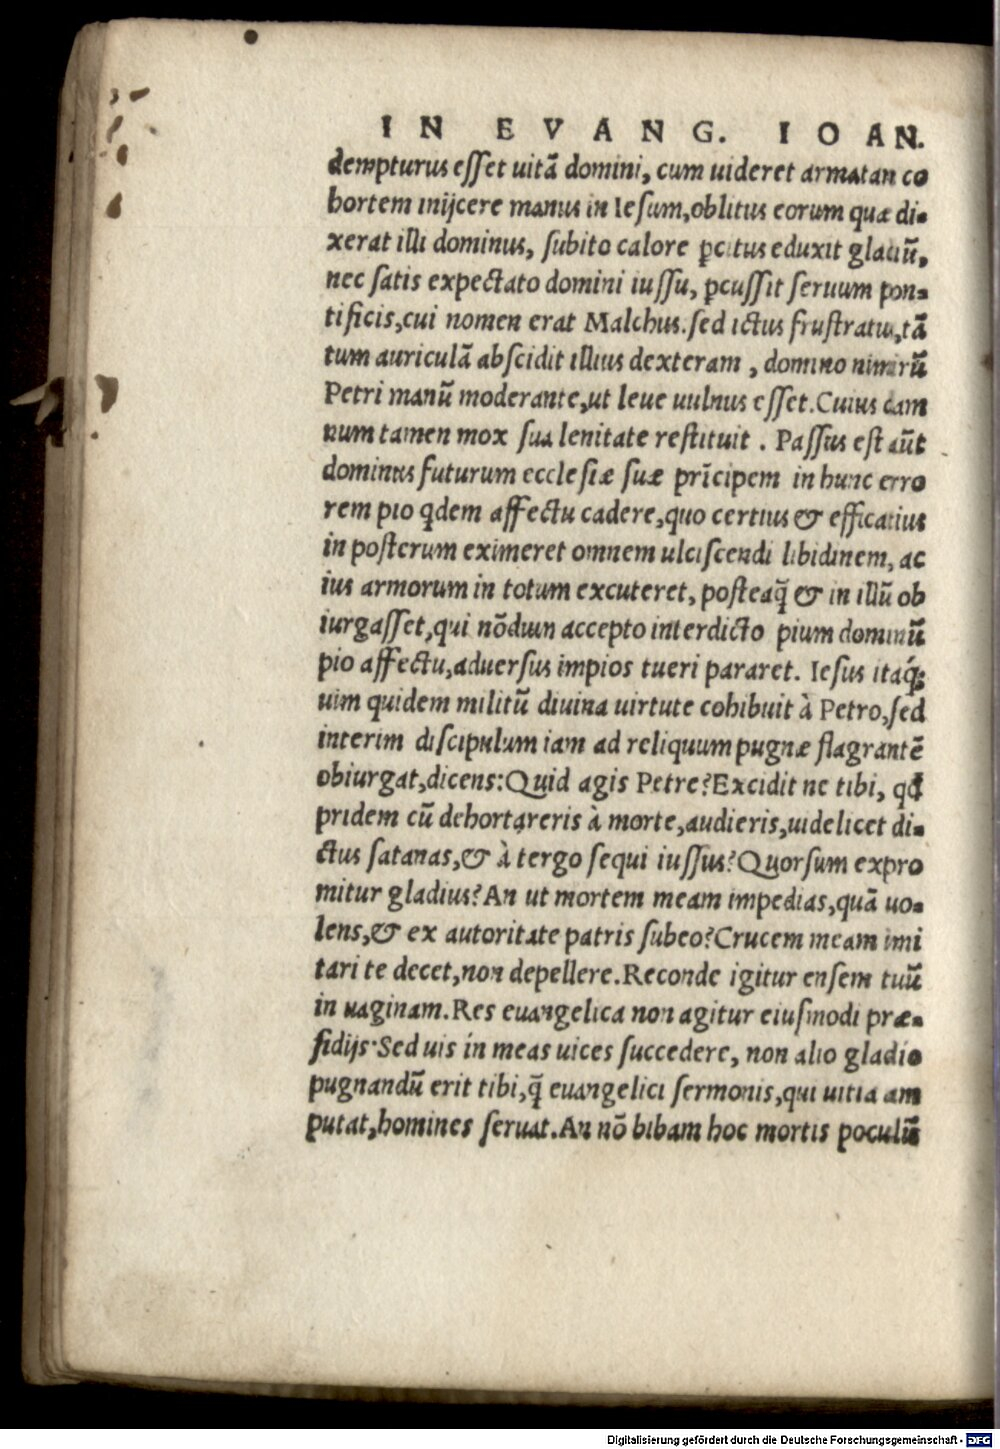 IN EVANG. IOAN.
dempturus esset uitã domini, cum uideret armatan co
hortem inijcere manus in Iesum,oblitus eorum quæ di-
xerat illi dominus, subito calore ꝑcitus eduxit gladiũ,
nec satis expectato domini iussu, ꝑcussit seruum pon-
tificis,cui nomen erat Malchus.sed ictus frustratus,tã
tum auriculã abscidit illius dexteram , domino nimirũ
Petri manũ moderante,ut leue uulnus esset.Cuius dam
num tamen mox sua lenitate restituit . Passus est aũt
dominus futurum ecclesiæ suæ prĩcipem in hunc erro
rem pio qdem affectu cadere,quo certius & efficatius
in posterum eximeret omnem ulciscendi libidinem, ac
ius armorum in totum excuteret, posteaq̃ & in illũ ob
iurgasset,qui nõdum accepto interdicto pium dominũ
pio affectu,aduersus impios tueri pararet. Iesus itaq́;
uim quidem militũ diuina uirtute cohibuit à Petro,sed
interim discipulum iam ad reliquum pugnæ flagrantẽ
obiurgat,dicens:Quid agis Petre?Excidit ne tibi, qđ
pridem cũ dehortareris à morte,audieris,uidelicet di-
ctus satanas,& à tergo sequi iussus?Quorsum expro
mitur gladius?An ut mortem meam impedias,quã uo-
lens,& ex autoritate patris subeo?Crucem meam imi
tari te decet,non depellere.Reconde igitur ensem tuũ
in uaginam.Res euangelica non agitur eiusmodi præ-
sidijs·Sed uis in meas uices succedere, non alio gladio
pugnandũ erit tibi,q̃ euangelici sermonis,qui uitia am
putat,homines seruat.An nõ bibam hoc mortis poculũ
Digitalisierung gefördert durch die Deutsche Forschungsgemeinschaft - DFG